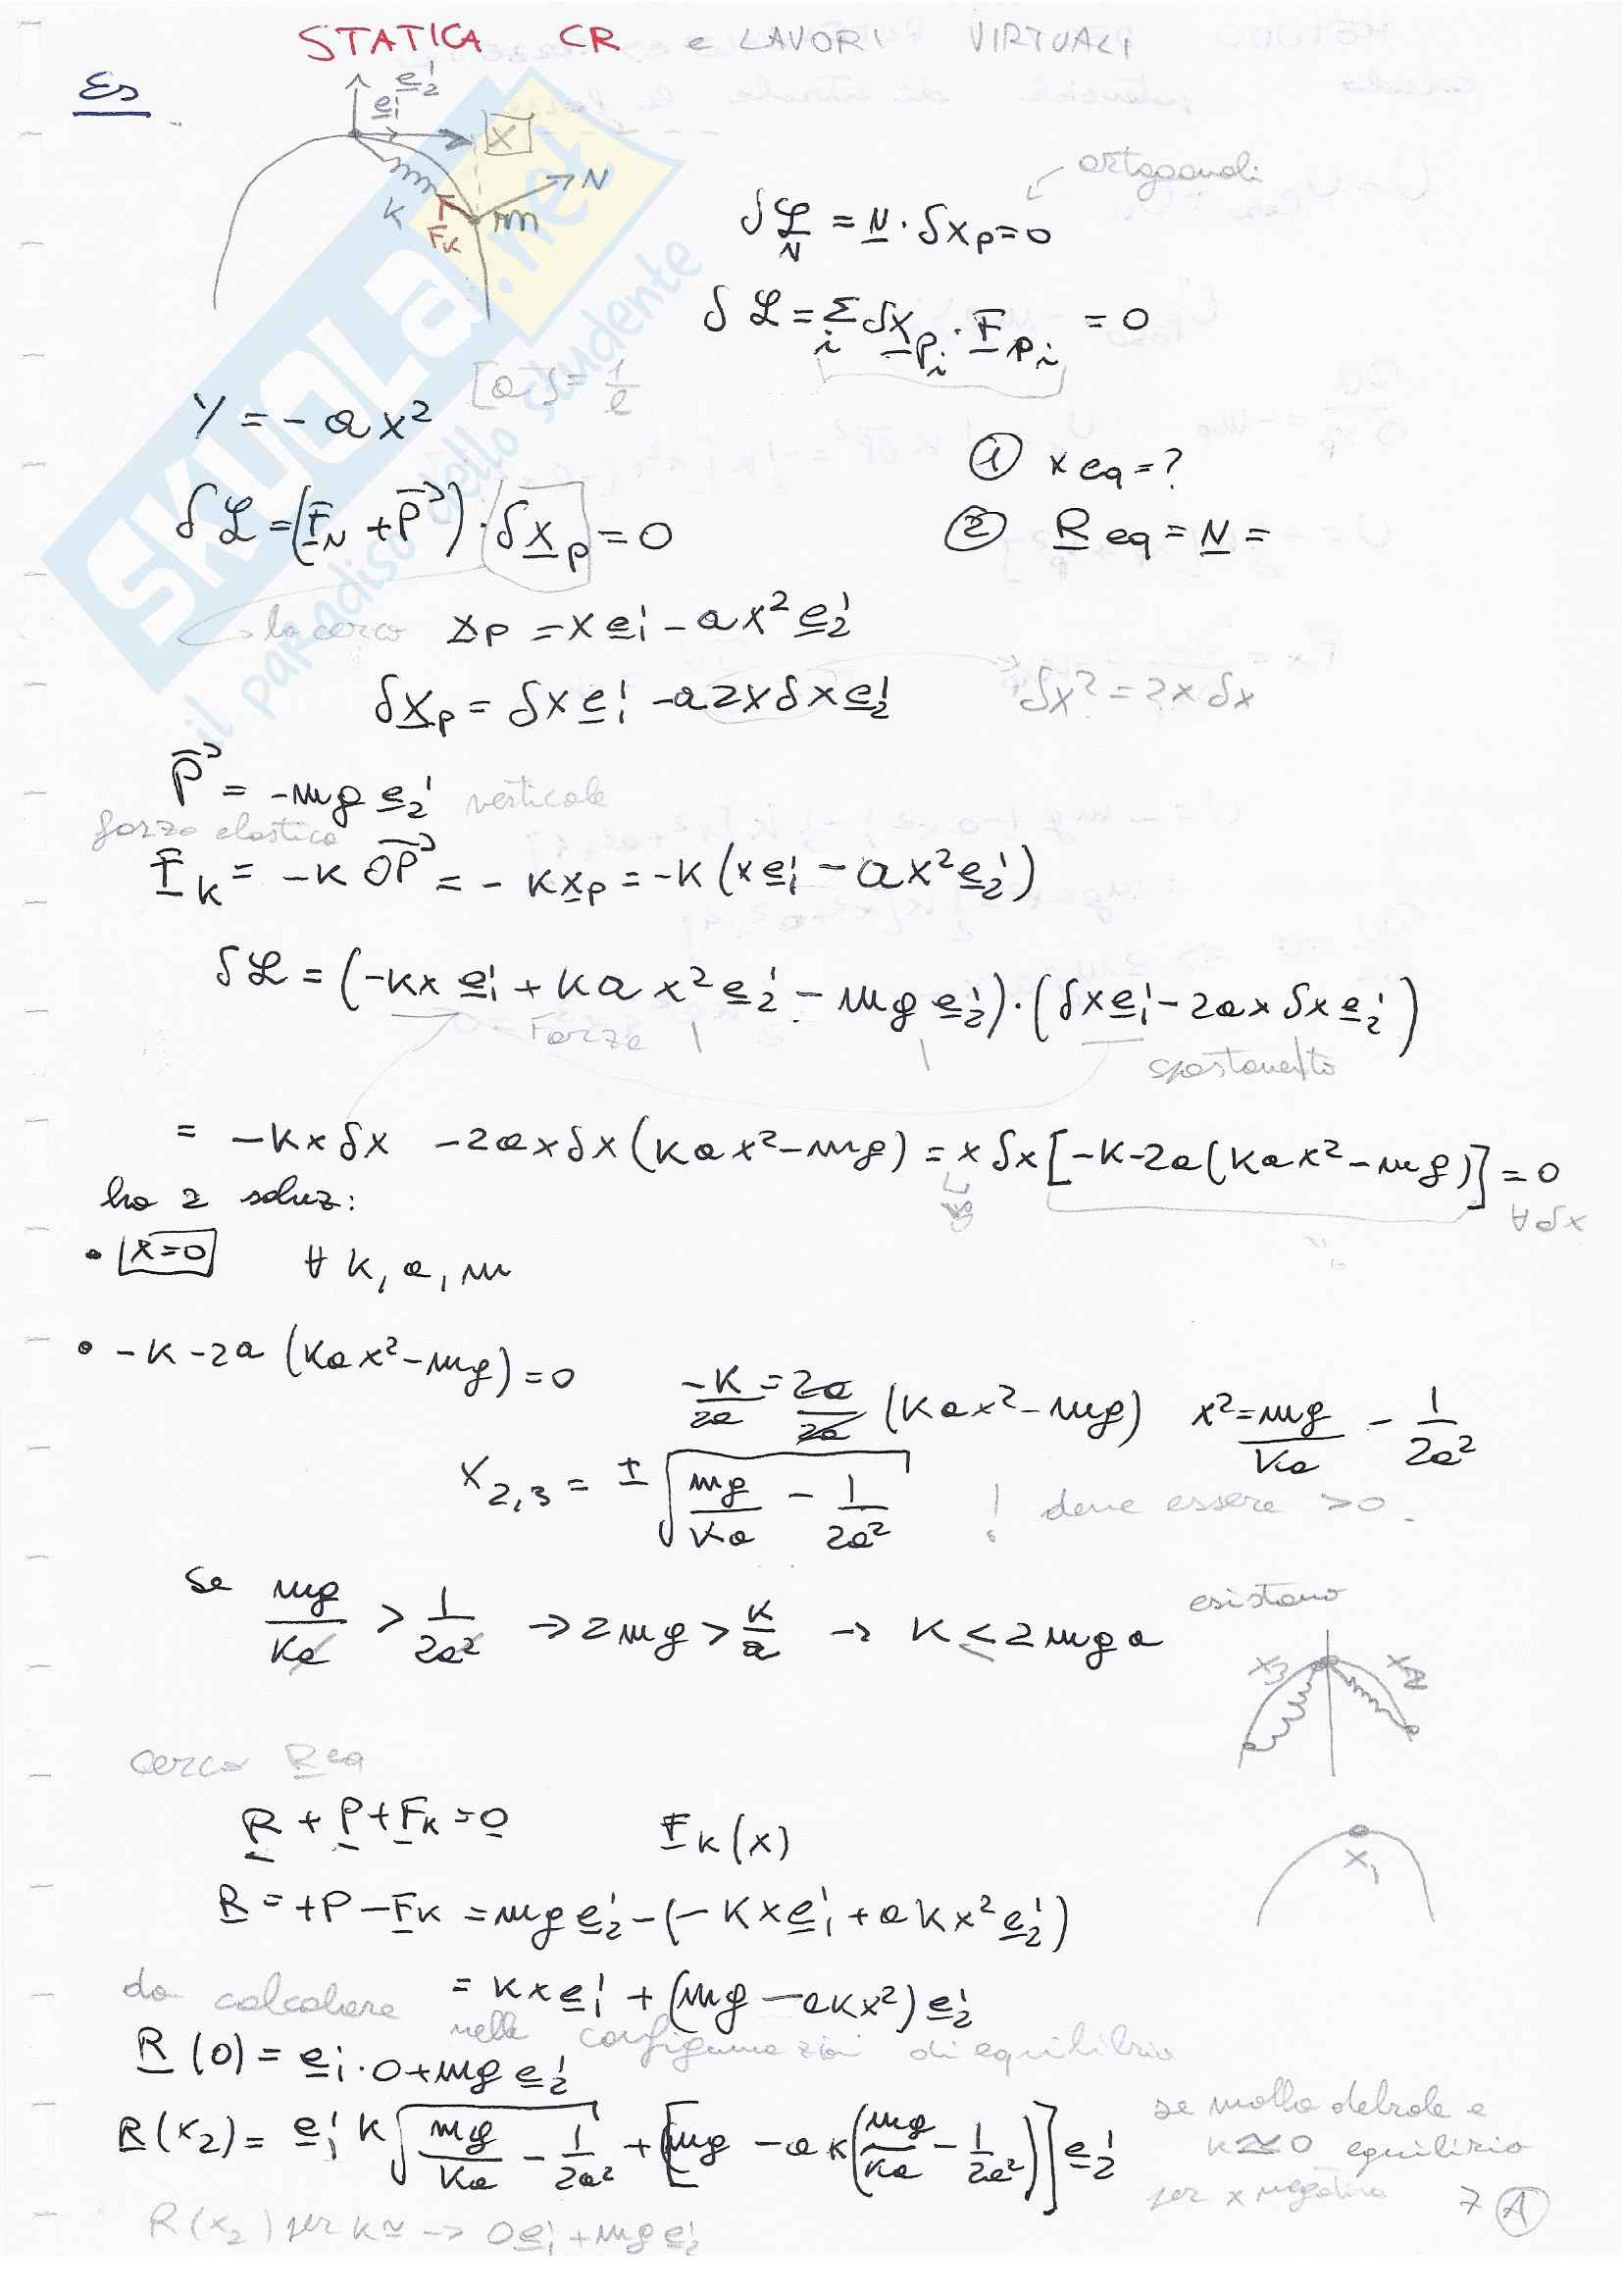 STATICA CR e LAVORI VIRTUALI
Es
e'₂
e'₁
x
N
K
F_K
m
ortogonali
δℒ_N = N · δx_P = 0
δℒ = Σ_i δx_Pi · F_Pi = 0
[a] = 1/l
y = -ax²
① x eq = ?
δℒ = (F_N + P⃗) · δx_P = 0
② R eq = N =
lo cerco x_P = x e'₁ - ax² e'₂
δx_P = δx e'₁ - a2xδx e'₂
δx² = 2x δx
P⃗ = -mg e'₂ verticale
forza elastica
F_K = -K OP⃗ = -K x_P = -K(x e'₁ - ax² e'₂)
δℒ = (-Kx e'₁ + Kax² e'₂ - mg e'₂) · (δx e'₁ - 2ax δx e'₂)
Forze
spostamento
= -Kxδx - 2axδx(Kax² - mg) = xδx[-K-2a(Kax² - mg)] = 0
∀δx
ho 2 soluz:
• x=0 ∀ K, a, m
• -K-2a (Kax² - mg) = 0
-K/2a = 2a/2a (Kax² - mg) x² = mg/Ka - 1/2a²
x₂,₃ = ± √(mg/Ka - 1/2a²) ! deve essere > 0.
Se mg/Ka > 1/2a² → 2mg > K/a → K < 2mga
esistono
x₃
x₂
cerco R eq
R + P + F_K = 0 F_K(x)
x₁
R = +P - F_K = mg e'₂ - (-Kx e'₁ + aKx² e'₂)
= Kx e'₁ + (mg - aKx²) e'₂
da calcolare nelle configurazioni di equilibrio
R(0) = e'₁ · 0 + mg e'₂
R(x₂) = e'₁ K √(mg/Ka - 1/2a²) + [mg - aK(mg/Ka - 1/2a²)] e'₂
se molla debole e
K≈0 equilibrio
per x negativo
R(x₂) per K≈ → 0e'₁ + mg e'₂
7 A
SKUOLA.net
il paradiso dello studente